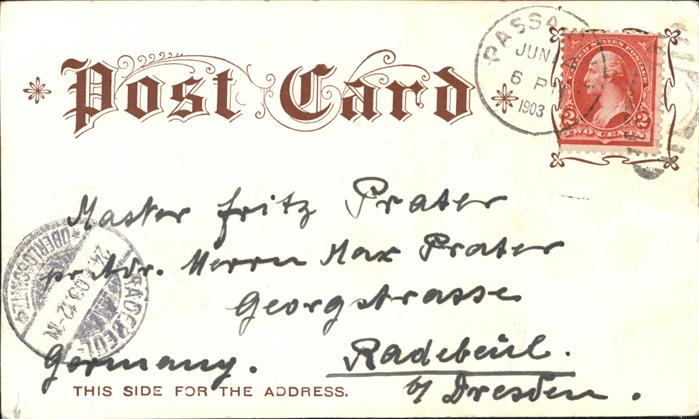 Post Card
PASSA
JUN
6 P
1903
UNITED STATES POSTAGE
2 2
TWO CENTS
Master Fritz Prater
pr. Adr. Herrn Max Prater
Georgstrasse
Germany. Radebeul.
b/ Dresden.
RADEBEUL
OBERLÖSSNITZ
THIS SIDE FOR THE ADDRESS.